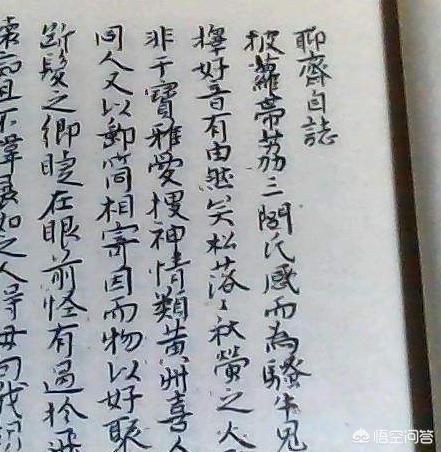 聊齋自誌
披蘿帶荔三閭氏感而為騷牛鬼
擇好音有由然矣松落〻秋螢之火
非干寶雅愛搜神情類黃州喜人
同人又以郵筒相寄因而物以好聚
斷髮之鄉睫在眼前怪有過於飛
且不諱展如之人得毋向我
悟空问答